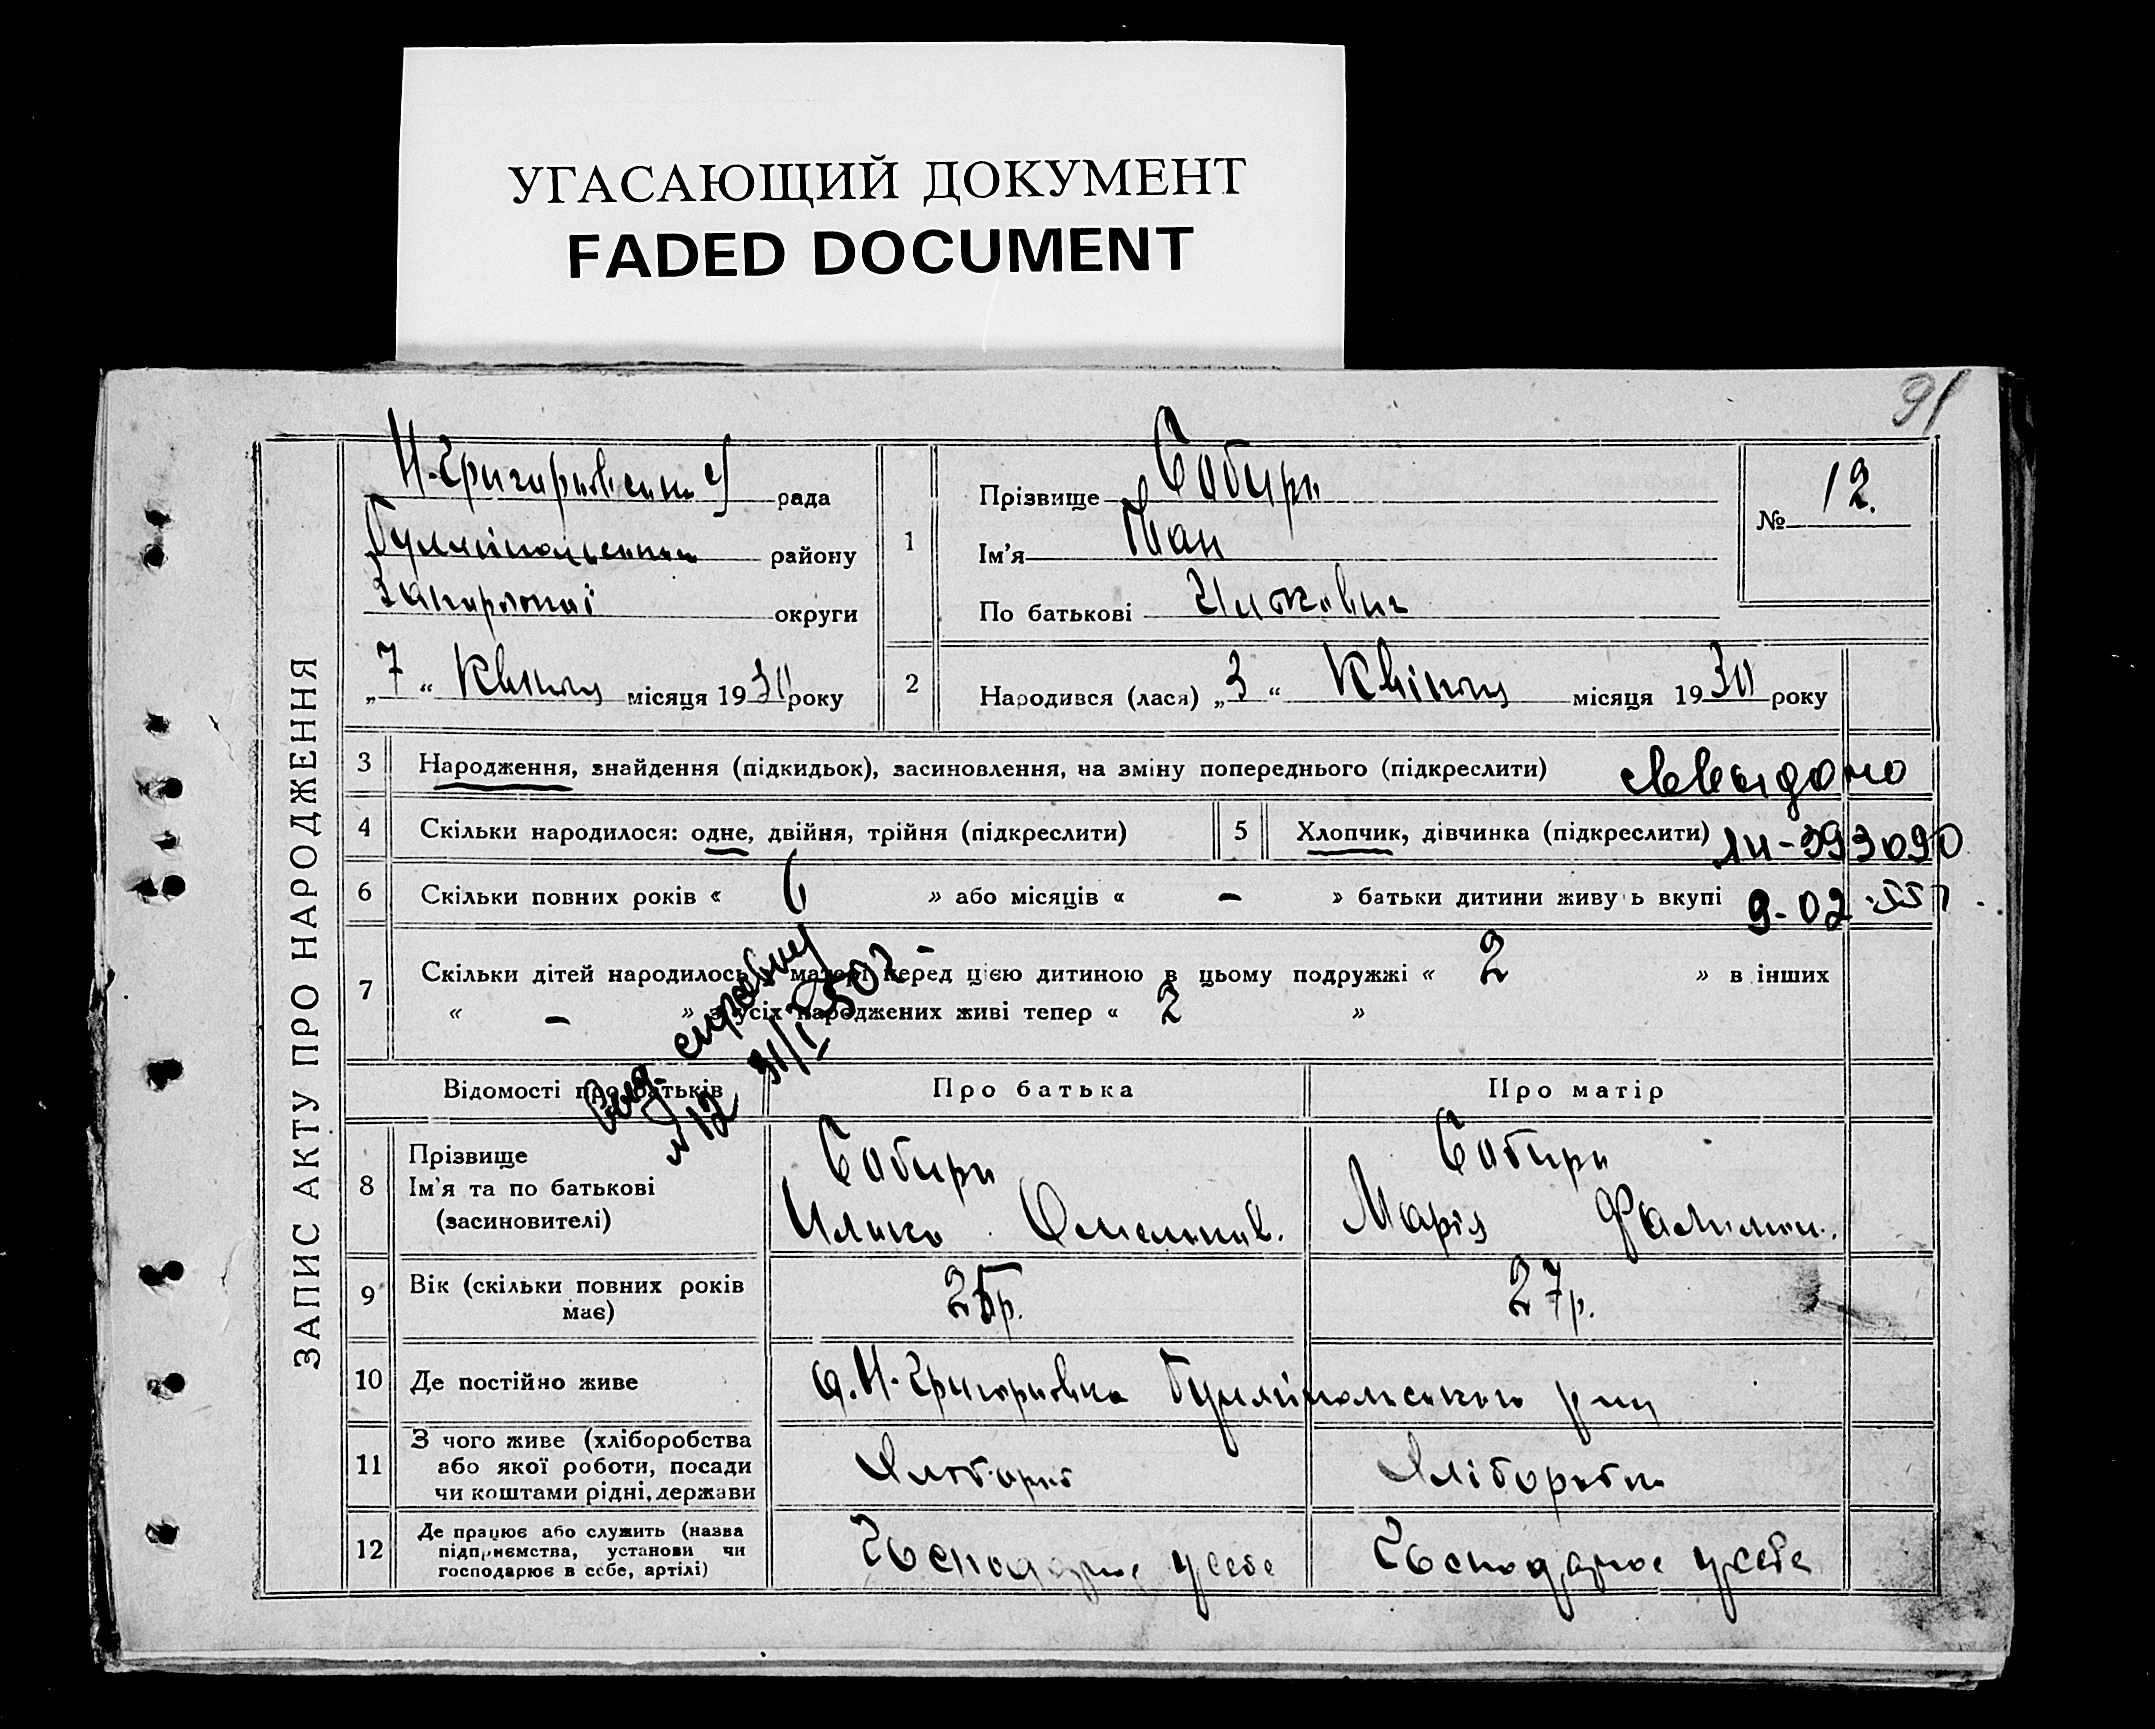 УГАСАЮЩИЙ ДОКУМЕНТ
FADED DOCUMENT
91
ЗАПИС АКТУ ПРО НАРОДЖЕННЯ
рада
району
округи
„7“ Квітня місяця 1930 року
1
Прізвище
Ім'я Іван
По батькові
№ 12.
2
Народився (лася) „3“ Квітня місяця 1930 року
3 Народження, знайдення (підкидьок), засиновлення, на зміну попереднього (підкреслити)
4 Скільки народилося: одне, двійня, трійня (підкреслити)
5 Хлопчик, дівчинка (підкреслити) 393090
6 Скільки повних років « 6 » або місяців « – » батьки дитини живуть вкупі 9-02
7 Скільки дітей народилось у матері перед цією дитиною в цьому подружжі « 2 » в інших
« – » з усіх народжених живі тепер « 2 »
№ 12
Відомості про батьків
Про батька
Про матір
8 Прізвище
Ім'я та по батькові
(засиновителі)
Марія
9 Вік (скільки повних років має)
25р.
27р.
10 Де постійно живе
с. Н-Григорівка Гуляйпольського р-ну
11 З чого живе (хліборобства
або якої роботи, посади
чи коштами рідні, держави
12 Де працює або служить (назва
підприємства, установи чи
господарює в себе, артілі)
Господарює у себе
Господарює у себе